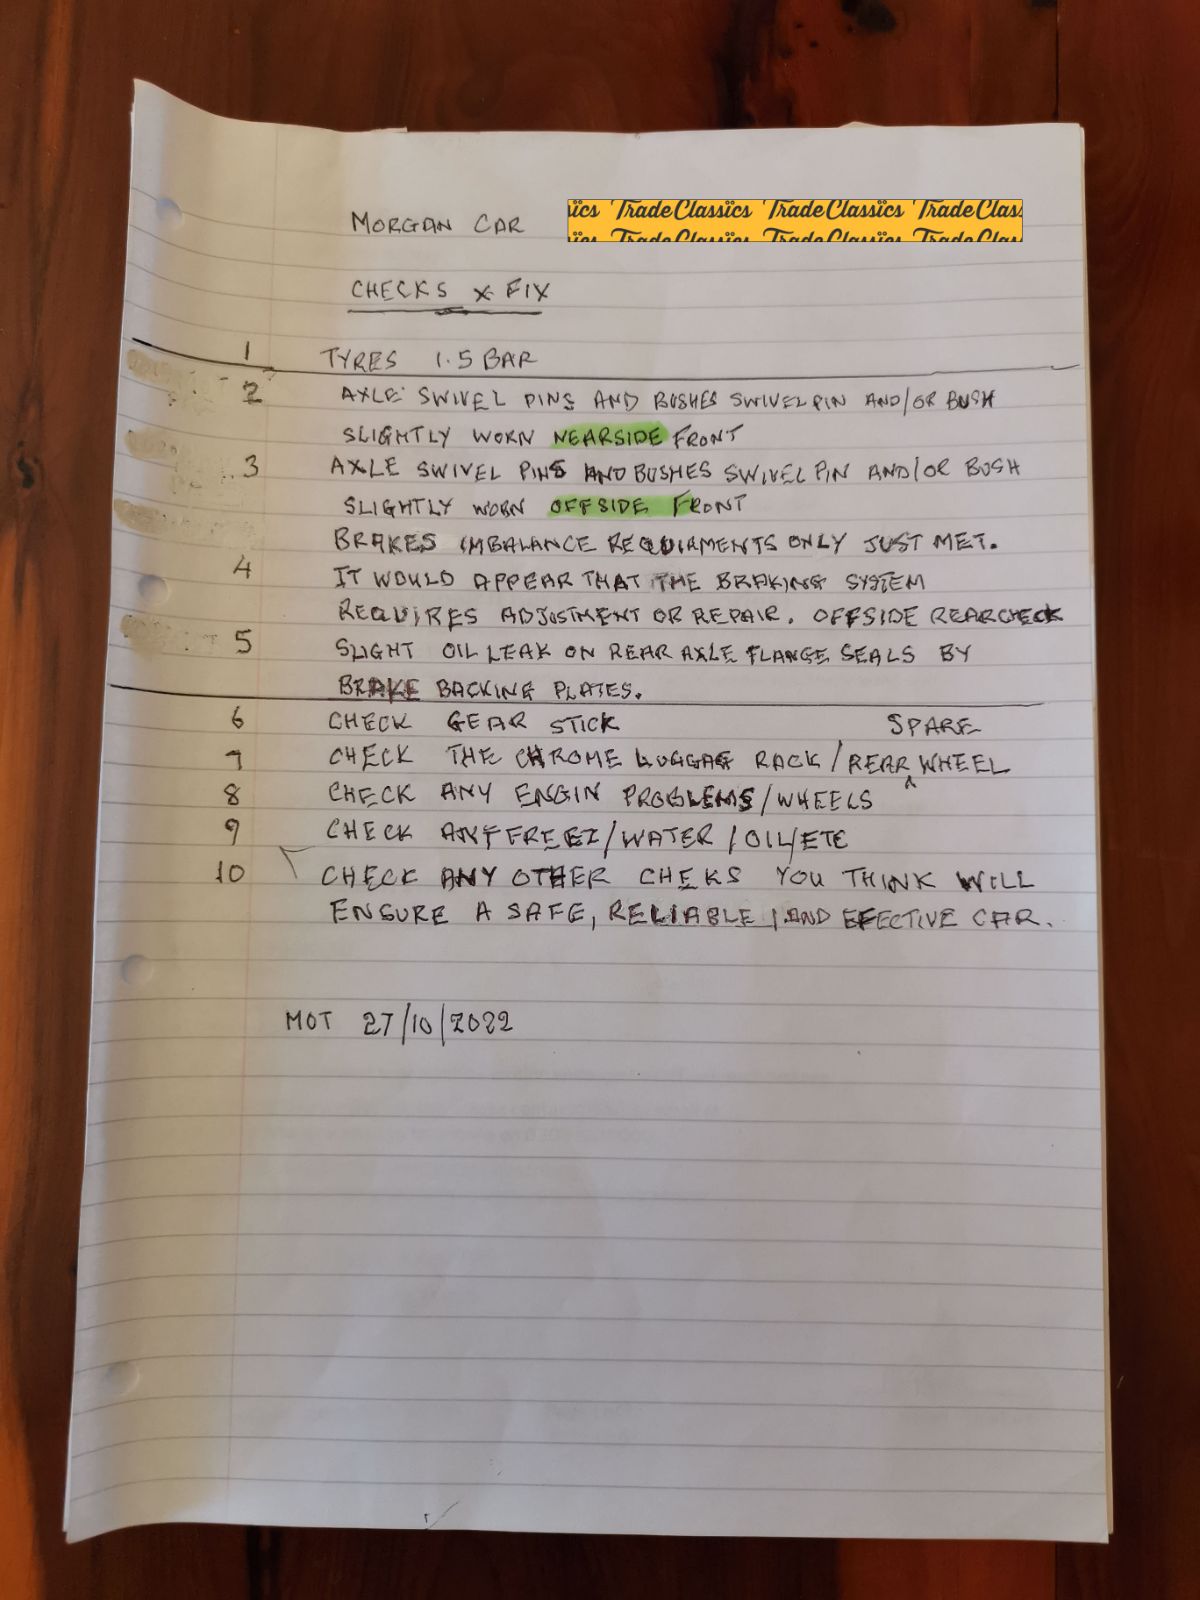 MORGAN CAR
ïcs TradeClassïcs TradeClassïcs TradeClas
ïcs TradeClassïcs TradeClassïcs TradeClas
CHECKS & FIX
1 TYRES 1.5 BAR
2 AXLE SWIVEL PINS AND BUSHES SWIVEL PIN AND/OR BUSH
SLIGHTLY WORN NEARSIDE FRONT
3 AXLE SWIVEL PINS AND BUSHES SWIVEL PIN AND/OR BUSH
SLIGHTLY WORN OFFSIDE FRONT
BRAKES IMBALANCE REQUIRMENTS ONLY JUST MET.
4 IT WOULD APPEAR THAT THE BRAKING SYSTEM
REQUIRES ADJUSTMENT OR REPAIR. OFFSIDE REAR CHECK
5 SLIGHT OIL LEAK ON REAR AXLE FLANGE SEALS BY
BRAKE BACKING PLATES.
6 CHECK GEAR STICK
7 CHECK THE CHROME LUGGAG RACK / REAR SPARE WHEEL
8 CHECK ANY ENGIN PROBLEMS / WHEELS
9 CHECK ANTFREEZ / WATER / OIL / ETC
10 CHECK ANY OTHER CHEKS YOU THINK WILL
ENSURE A SAFE, RELIABLE, AND EFECTIVE CAR.
MOT 27/10/2022